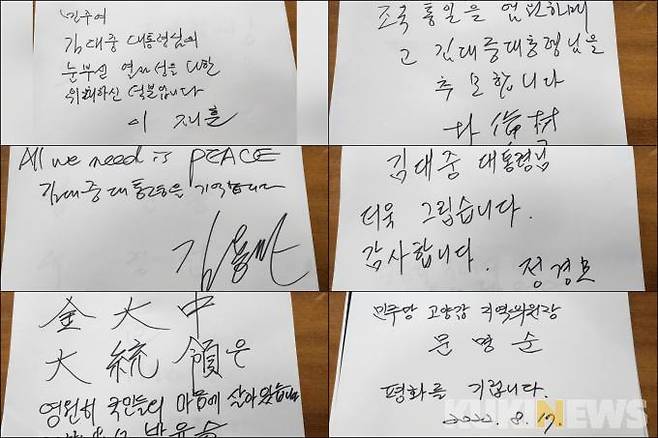 민주여
김대중 대통령님의
눈부신 열매
위대하신 덕분입니다
이
조국 통일을 염원하며
고 김대중대통령님을
추모합니다
All we need is PEACE
김대중 대통령을 기억합니다
김
김대중 대통령님
더욱 그립습니다.
감사합니다.
정경모
金大中
大統領은
영원히 국민들의 마음에 살아있습니다
민주당 고양갑 지역위원장
문명순
평화를 기립니다.
2022. 8. 17.
KUKINEWS